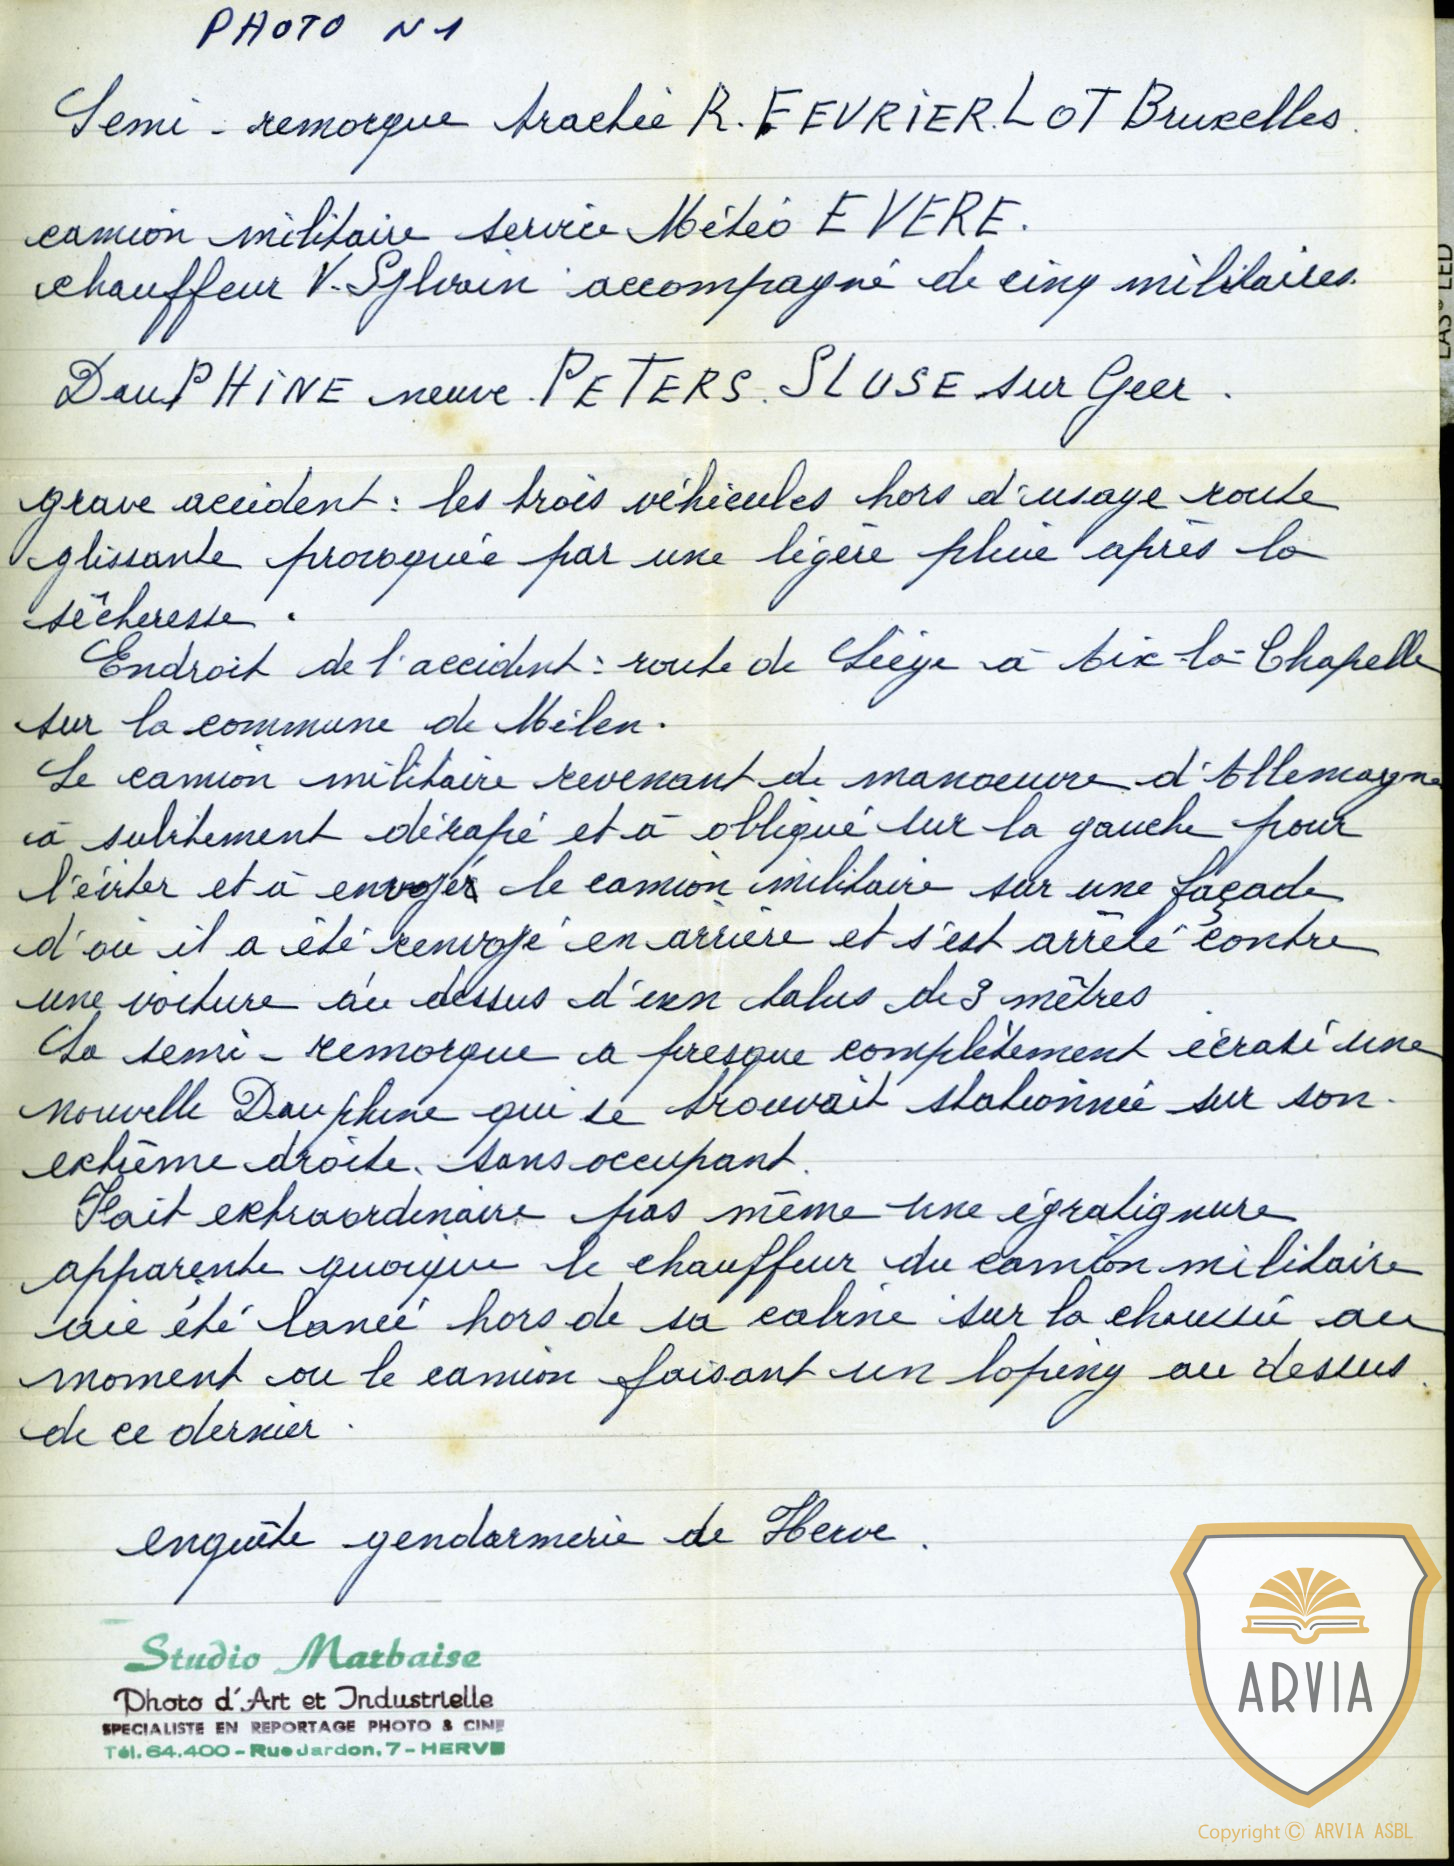 PHOTO N 1
Semi - remorque tractée R. FEVRIER. LOT Bruxelles.
camion militaire service Météo EVERE.
chauffeur V. Sylvain accompagné de cinq militaires.
DauPHiNE neuve. PETERS. SLUSE sur Geer.
grave accident : les trois véhicules hors d'usage route
glissante provoquée par une légère pluie après la
sècheresse.
Endroit de l'accident : route de Liège à Aix-la-Chapelle
sur la commune de Mélen.
Le camion militaire revenant de manoeuvre d'Allemagne
à subitement dérapé et à obliqué sur la gauche pour
l'éviter et à envoyér le camion militaire sur une façade
d'où il a été renvoyé en arrière et s'est arrêté contre
une voiture au dessus d'un talus de 3 mètres
La semi - remorque a presque complètement écrasé une
nouvelle Dauphine qui se trouvait stationnée sur son
extrème droite. sans occupant.
Fait extraordinaire pas même une égratignure
apparente quoique le chauffeur du camion militaire
aie été lancé hors de sa cabine sur la chaussée au
moment ou le camion faisant un loping au dessus
de ce dernier.
enquête gendarmerie de Herve.
Studio Marbaise
Photo d'Art et Industrielle
SPECIALISTE EN REPORTAGE PHOTO & CINE
Tél. 64.400 - Rue Jardon, 7 - HERVE
ARVIA
Copyright © ARVIA ASBL